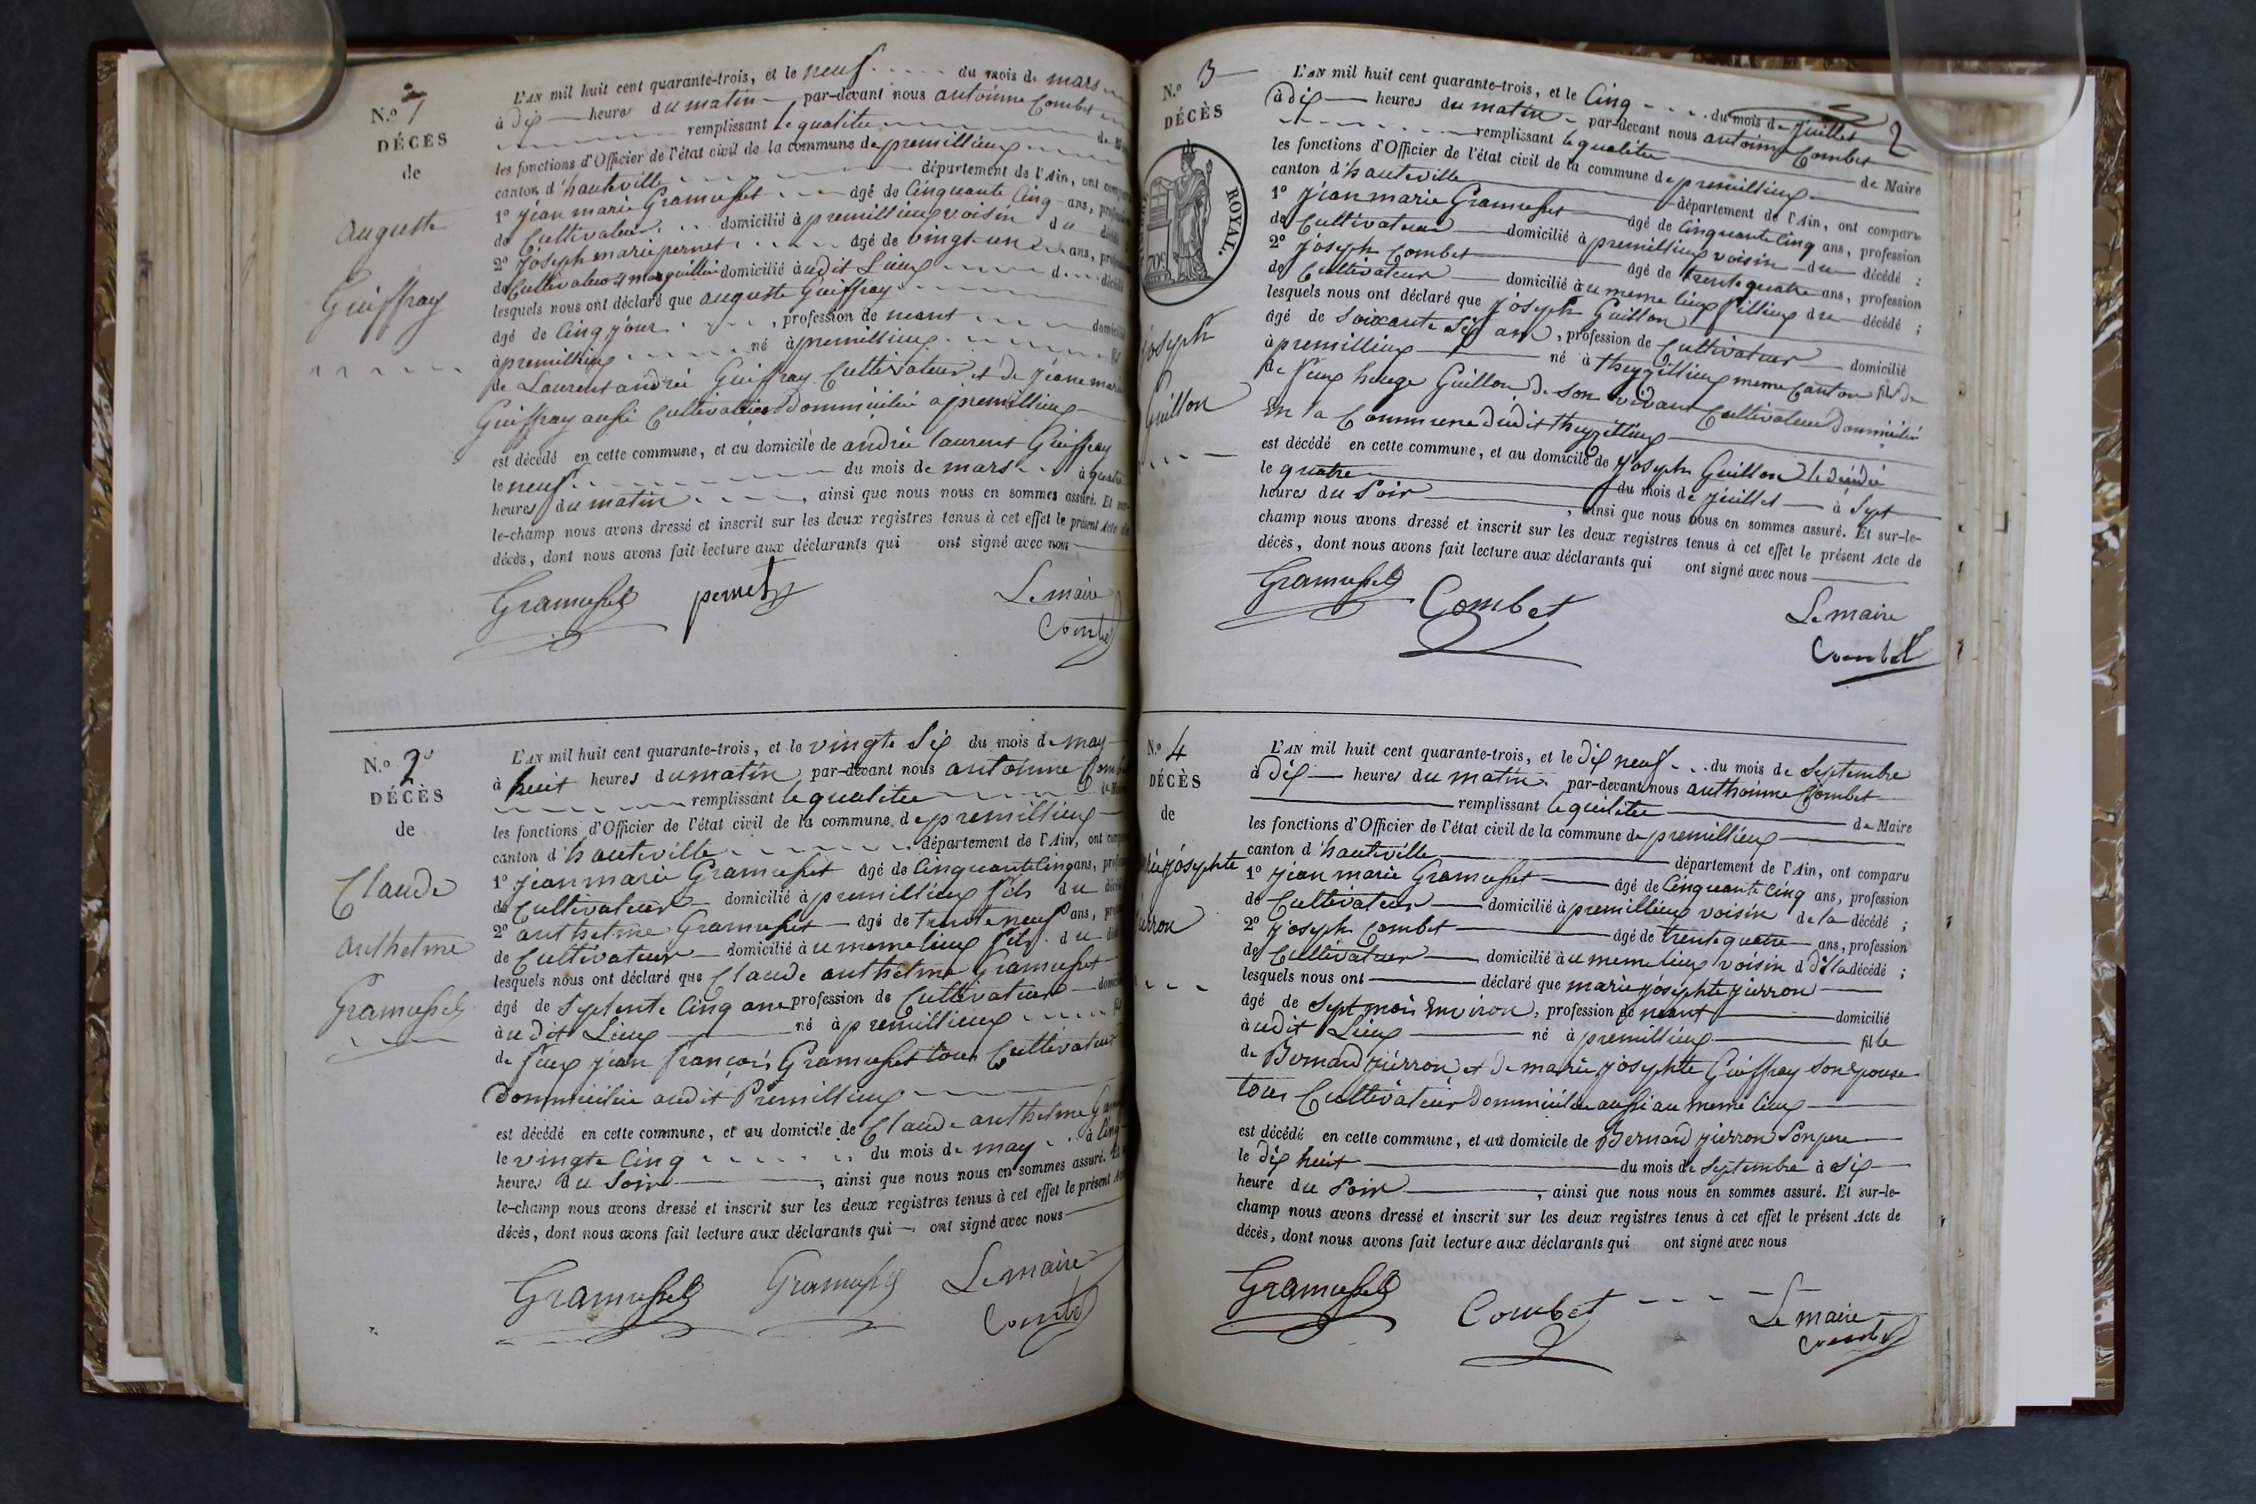 N.o 1
DÉCÈS
de
auguste
Guiffray
L'AN mil huit cent quarante-trois, et le neuf du mois de mars
à dix heures du matin par-devant nous antoinne Combet
remplissant le qualitée de
les fonctions d'Officier de l'état civil de la commune de premillieux
canton d'hauteville département de l'Ain, ont
1º jean marie Gramusset âgé de Cinquante Cinq ans,
de Cultivateur domicilié à premillieux voisin du
2º joseph marie pernet âgé de vingt-un ans,
de Cultivateur domicilié à udit Lieux d
lesquels nous ont déclaré que auguste Guiffray
âgé de Cinq jour, profession de neant
à premillieux né à premillieux
de Laurent andréi Guiffray Cultivateur et de jeanne
Guiffray aussi Cultivatur dommicilié a premillieux
est décédé en cette commune, et au domicile de andrée laurent Guiffray
le neuf du mois de mars à quatre
heures du matin, ainsi que nous nous en sommes assuré. Et
le-champ nous avons dressé et inscrit sur les deux registres tenus à cet effet le présent Acte de
décès, dont nous avons fait lecture aux déclarants qui ont signé avec nous
Gramusset pernet Le maire
Combet
N.o 2
DÉCÈS
de
Claude
anthelme
Gramusset
L'AN mil huit cent quarante-trois, et le vingte Six du mois de may
à huit heures du matin par-devant nous antoinne
remplissant le qualitée
les fonctions d'Officier de l'état civil de la commune de premillieux
canton d'hauteville département de l'Ain, ont
1º jean marie Gramusset âgé de Cinquante Cinq ans,
de Cultivateur domicilié à premillieux fils du
2º anthelme Gramusset âgé de trente neuf ans,
de Cultivateur domicilié à u meme lieux fils du
lesquels nous ont déclaré que Claude anthelme Gramusset
âgé de Septente Cinq ans profession de Cultivateur
à udit Lieux né à premillieux
de feux jean françois Gramusset tous Cultivateur
Dommicilié audit Premillieux
est décédé en cette commune, et au domicile de Claude anthelme
le vingte Cinq du mois de may à Cinq
heures du Soir, ainsi que nous nous en sommes assuré.
le-champ nous avons dressé et inscrit sur les deux registres tenus à cet effet le présent
décès, dont nous avons fait lecture aux déclarants qui ont signé avec nous
Gramusset Gramusset Le maire
Combet
2
N.o 3
DÉCÈS
de
ROYAL.
joseph
Guillon
L'AN mil huit cent quarante-trois, et le Cinq du mois de juillet
à dix heures du matin par-devant nous antoinne Combet
remplissant le qualitée de Maire
les fonctions d'Officier de l'état civil de la commune de premillieux
canton d'hauteville département de l'Ain, ont comparu
1º jean marie Gramusset âgé de Cinquante Cinq ans, profession
de Cultivateur domicilié à premillieux voisin du décédé ;
2º joseph Combet âgé de trente quatre ans, profession
de Cultivateur domicilié à u meme lieux du décédé ;
lesquels nous ont déclaré que joseph Guillon
âgé de Soixante Six ans, profession de Cultivateur domicilié
à premillieux né à thezillieux meme Canton fils de
de feux Guillon de Son vivant Cultivateur dommicilié
En la Commune dudit thezillieux
est décédé en cette commune, et au domicile de joseph Guillon le décédé
le quatre du mois de juillet à Sept
heures du Soir, ainsi que nous nous en sommes assuré. Et sur-le-
champ nous avons dressé et inscrit sur les deux registres tenus à cet effet le présent Acte de
décès, dont nous avons fait lecture aux déclarants qui ont signé avec nous
Gramusset Combet Le maire
Combet
N.o 4
DÉCÈS
de
josephte
L'AN mil huit cent quarante-trois, et le dix neuf du mois de Septembre
à dix heures du matin par-devant nous anthoinne Combet
remplissant le quelitée de Maire
les fonctions d'Officier de l'état civil de la commune de premillieux
canton d'hauteville département de l'Ain, ont comparu
1º jean marie Gramusset âgé de Cinquante Cinq ans, profession
de Cultivateur domicilié à premillieux voisin de la décédé ;
2º joseph Combet âgé de trente quatre ans, profession
de Cultivateur domicilié à u meme lieux voisin d de la décédé ;
lesquels nous ont déclaré que marie josephte jierron
âgé de Sept mois Environ, profession de neant domicilié
à udit Lieux né à premillieux fille
de Bernard jierron et de marie josephte Guiffray son Epouse
tous Cultivateur dommicilié aussi au meme lieux
est décédé en cette commune, et au domicile de Bernard jierron Son pere
le dix huit du mois de Septembre à Six
heure du Soir, ainsi que nous nous en sommes assuré. Et sur-le-
champ nous avons dressé et inscrit sur les deux registres tenus à cet effet le présent Acte de
décès, dont nous avons fait lecture aux déclarants qui ont signé avec nous
Gramusset Combet Le maire
Combet